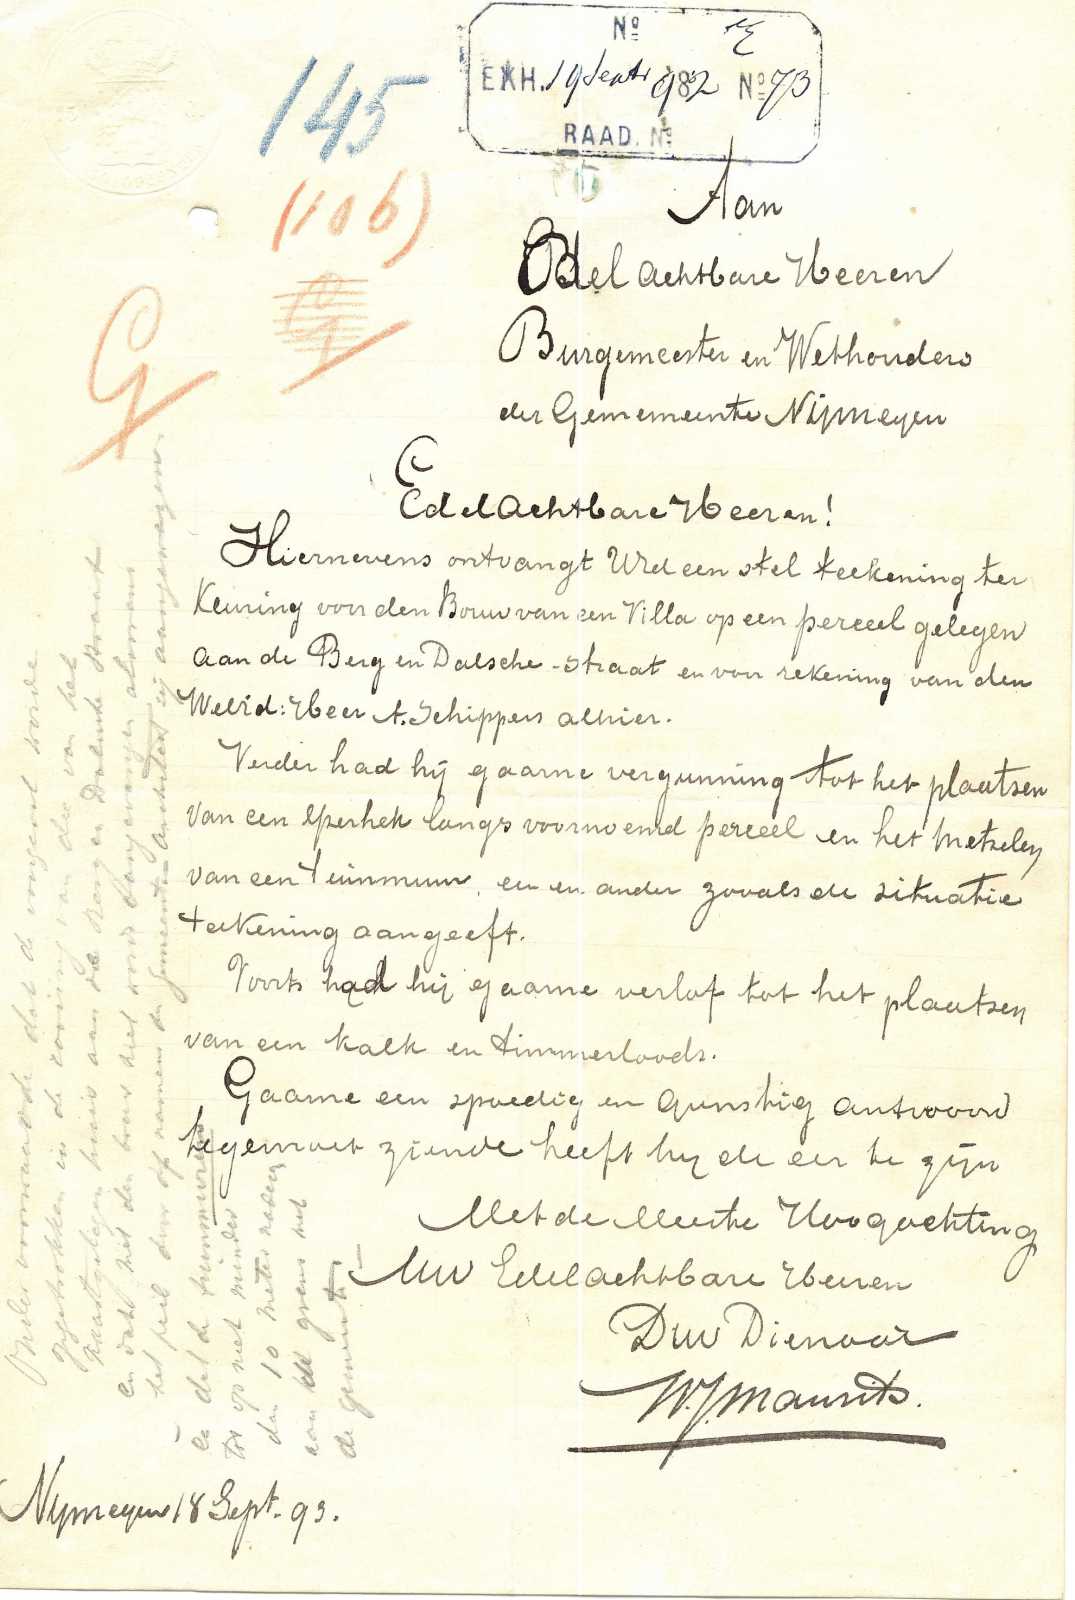 145
(106)
G
No
EXH. 19 Sept 1892 No 73
RAAD. No
Aan
Edel Achtbare Heeren
Burgemeester en Wethouders
der Gememeente Nijmegen
EdelAchtbare Heeren!
Hiernevens ontvangt UEd een stel teekening ter
Keuring voor den Bouw van een Villa op een perceel gelegen
aan de Berg en Dalsche-straat en voor rekening van den
WelEd: Heer A. Schippers alhier.
Verder had hij gaarne vergunning tot het plaatsen
van een Yperhek langs voornoemd perceel en het metselen
van een tuinmuur, een en ander zooals de situatie
tekening aangeeft.
Voorts had hij gaarne verlof tot het plaatsen
van een kalk en timmerloods.
Gaarne een spoedig en gunstig antwoord
tegemoet ziende heeft hij de eer te zijn
Met de Meeste Hoogachting
Uw Edelachtbare Heeren
Duw Dienaar
W.J. Maurits.
Nijmegen 18 Sept. 93.
Onder voorwaarde dat de voorgevel worde
opgetrokken in de rooiing van die van het
naastgelegen huis aan de Berg en Dalsche straat
en dat niet den bouw niet worde aangevangen alvorens
het peil door of namens den Gemeente-Architect zij aangewezen
en dat de tuinmuren
tot op niet minder
dan 10 meter nabij
aan de grens met
de gemeente